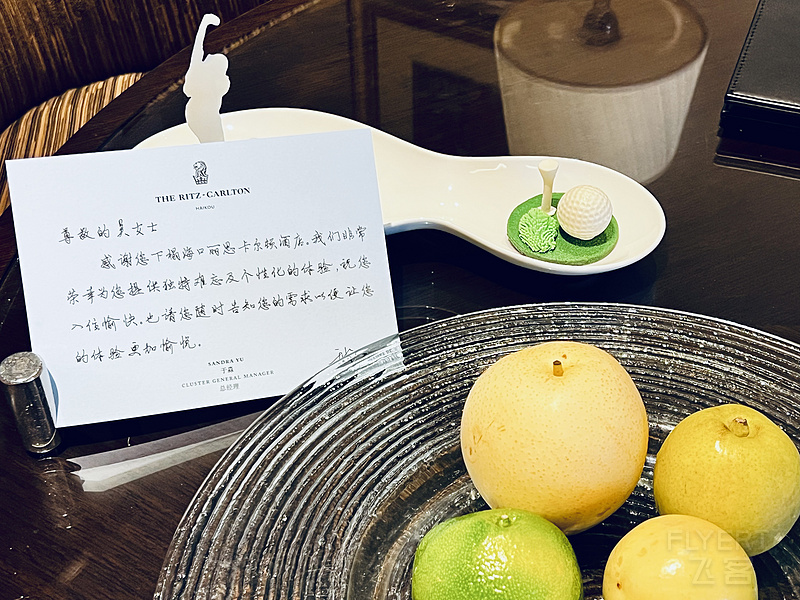 THE RITZ-CARLTON
HAIKOU
尊敬的吴女士
感谢您下榻海口丽思卡尔顿酒店。我们非常
荣幸为您提供独特难忘及个性化的体验，祝您
入住愉快。也请您随时告知您的需求以便让您
的体验更加愉悦。
SANDRA YU
于淼
CLUSTER GENERAL MANAGER
总经理
FLYERT
飞客